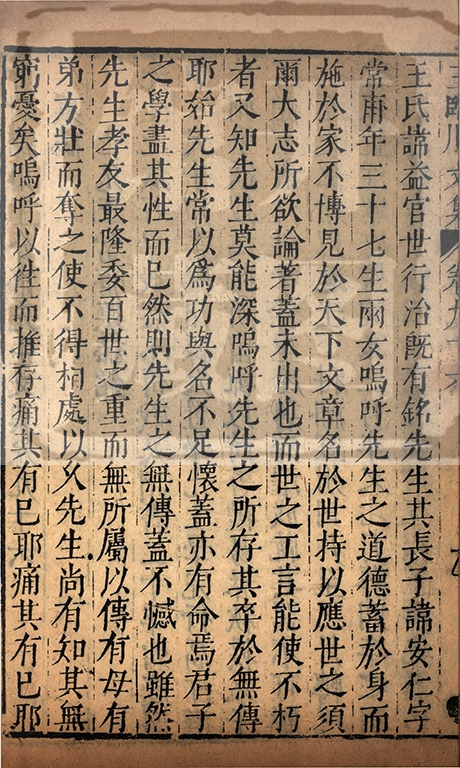 王臨川文集 卷九十六
王氏諱益官世行治既有銘先生其長子諱安仁字
常甫年三十七生兩女嗚呼先生之道德蓄於身而
施於家不博見於天下文章名於世持以應世之須
爾大志所欲論著蓋未出也而世之工言能使不朽
者又知先生莫能深嗚呼先生之所存其卒於無傳
耶始先生常以爲功與名不足懷蓋亦有命焉君子
之學盡其性而已然則先生之無傳蓋不憾也雖然
先生孝友最隆委百世之重而無所屬以傳有母有
弟方壯而奪之使不得相處以久先生尚有知其無
窮憂矣嗚呼以徃而推存痛其有已耶痛其有已耶